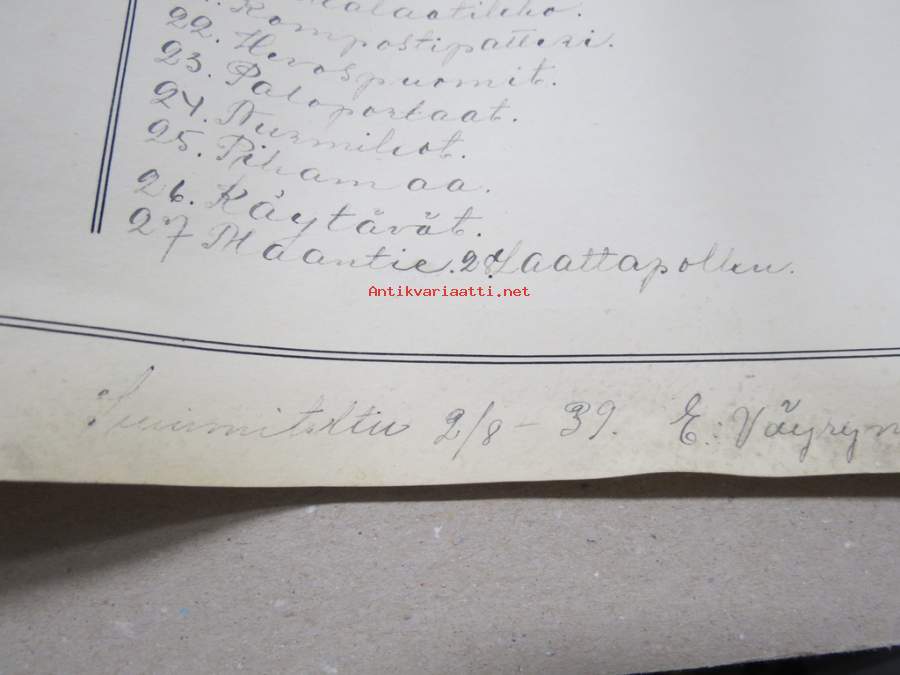 22. Kompostipatteri.
23. Hevospuomit.
24. Paloportaat.
25. Nurmikot.
26. Pihamaa.
Käytävät.
27 Maantie. 28 Laattapolku.
Antikvariaatti.net
Suunniteltu 2/8 - 39. E. Väyryn